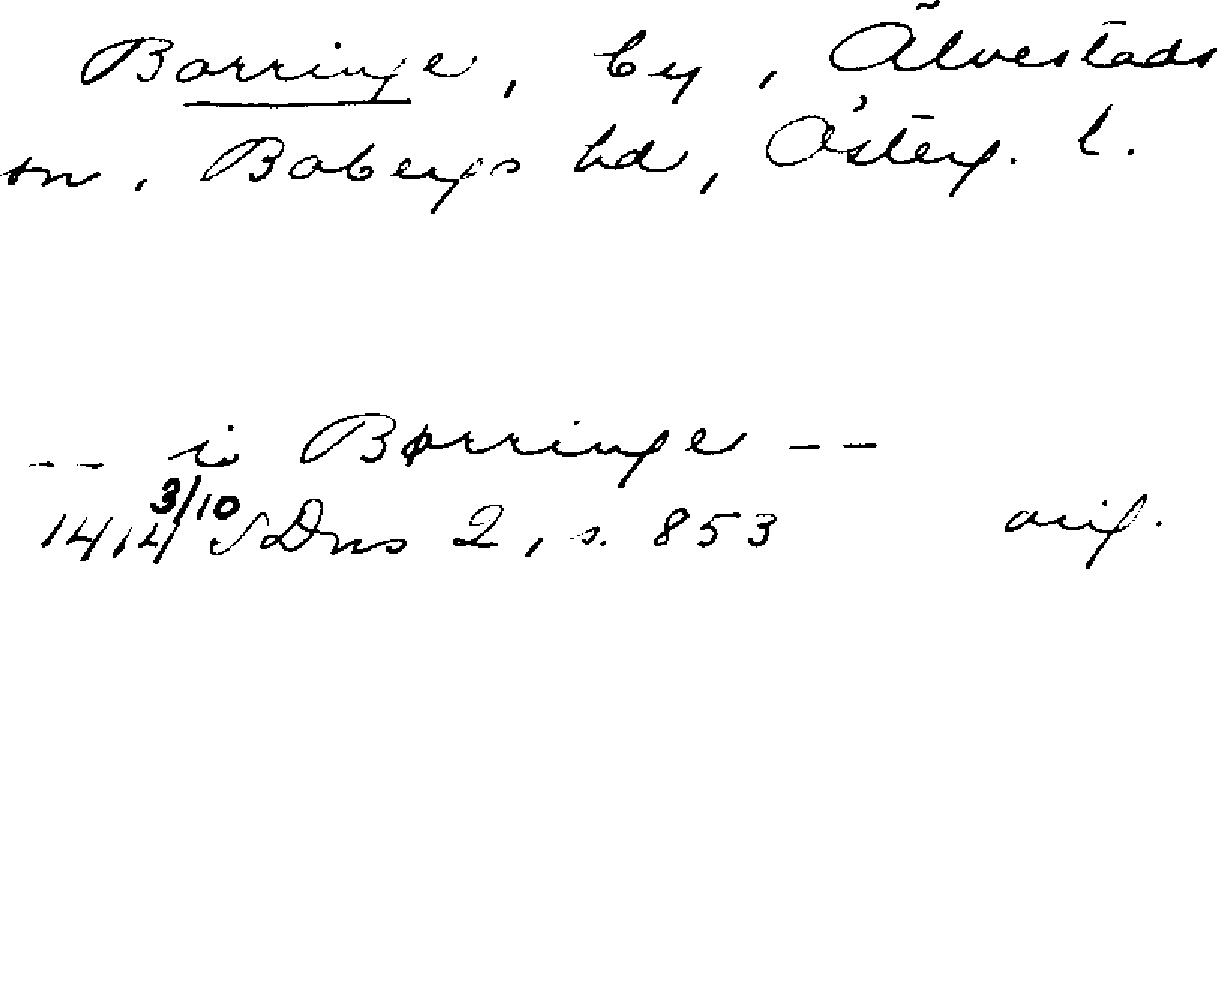 Borringe, by, Älvestads
sn, Bobergs hd, Österg. l.
-- i Børringe --
1414 3/10 SDns 2, s. 853 orig.